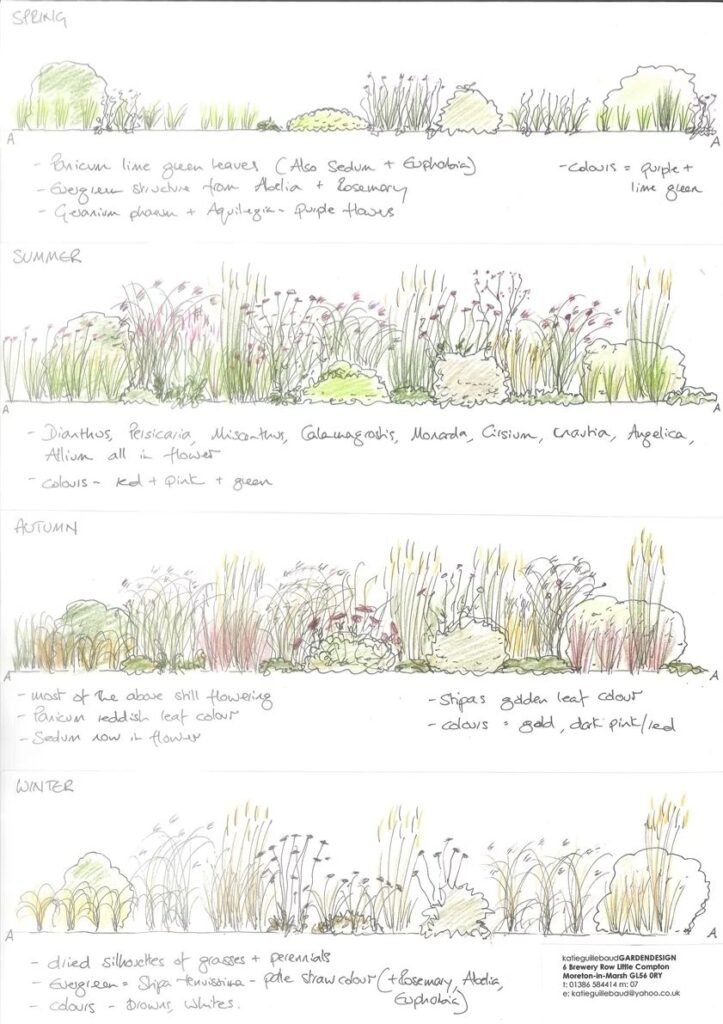 SPRING
A
A
- Panicum lime green leaves (Also Sedum + Euphorbia)
- Evergreen structure from Abelia + Rosemary
- Geranium phaeum + Aquilegia - purple flowers
- Colours = purple +
lime green
SUMMER
A
A
- Dianthus, Persicaria, Miscanthus, Calamagrostis, Monarda, Cirsium, Knautia, Angelica,
Allium all in flower
- Colours - red + pink + green
AUTUMN
A
A
- most of the above still flowering
- Panicum reddish leaf colour
- Sedum now in flower
- Stipas golden leaf colour
- colours = gold, dark pink/red
WINTER
A
A
- dried silhouettes of grasses + perennials
- Evergreen = Stipa tenuissima - pale straw colour (+Rosemary, Abelia,
Euphorbia)
- colours - Browns, whites.
katieguillebaudGARDENDESIGN
6 Brewery Row Little Compton
Moreton-in-Marsh GL56 0RY
t: 01386 584414 m: 07
e: katieguillebaud@yahoo.co.uk